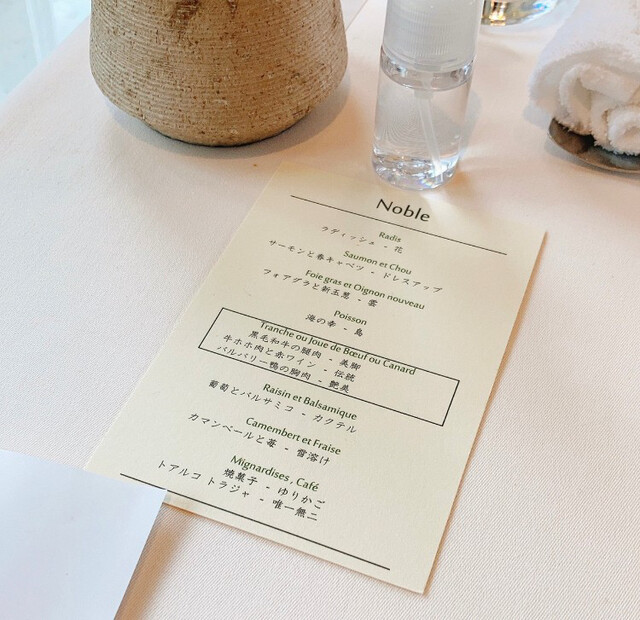 Noble
Radis
ラディッシュ - 花
Saumon et Chou
サーモンと春キャベツ - ドレスアップ
Foie gras et Oignon nouveau
フォアグラと新玉葱 - 雲
Poisson
海の幸 - 島
Tranche ou Joue de Bœuf ou Canard
黒毛和牛の腿肉 - 美脚
牛ホホ肉と赤ワイン - 伝統
バルバリー鴨の胸肉 - 艶美
Raisin et Balsamique
葡萄とバルサミコ - カクテル
Camembert et Fraise
カマンベールと苺 - 雪溶け
Mignardises , Café
焼菓子 - ゆりかご
トアルコ トラジャ - 唯一無二